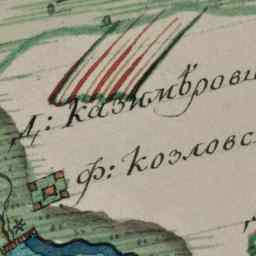 Д: казимѣровщ
Ф: козловс